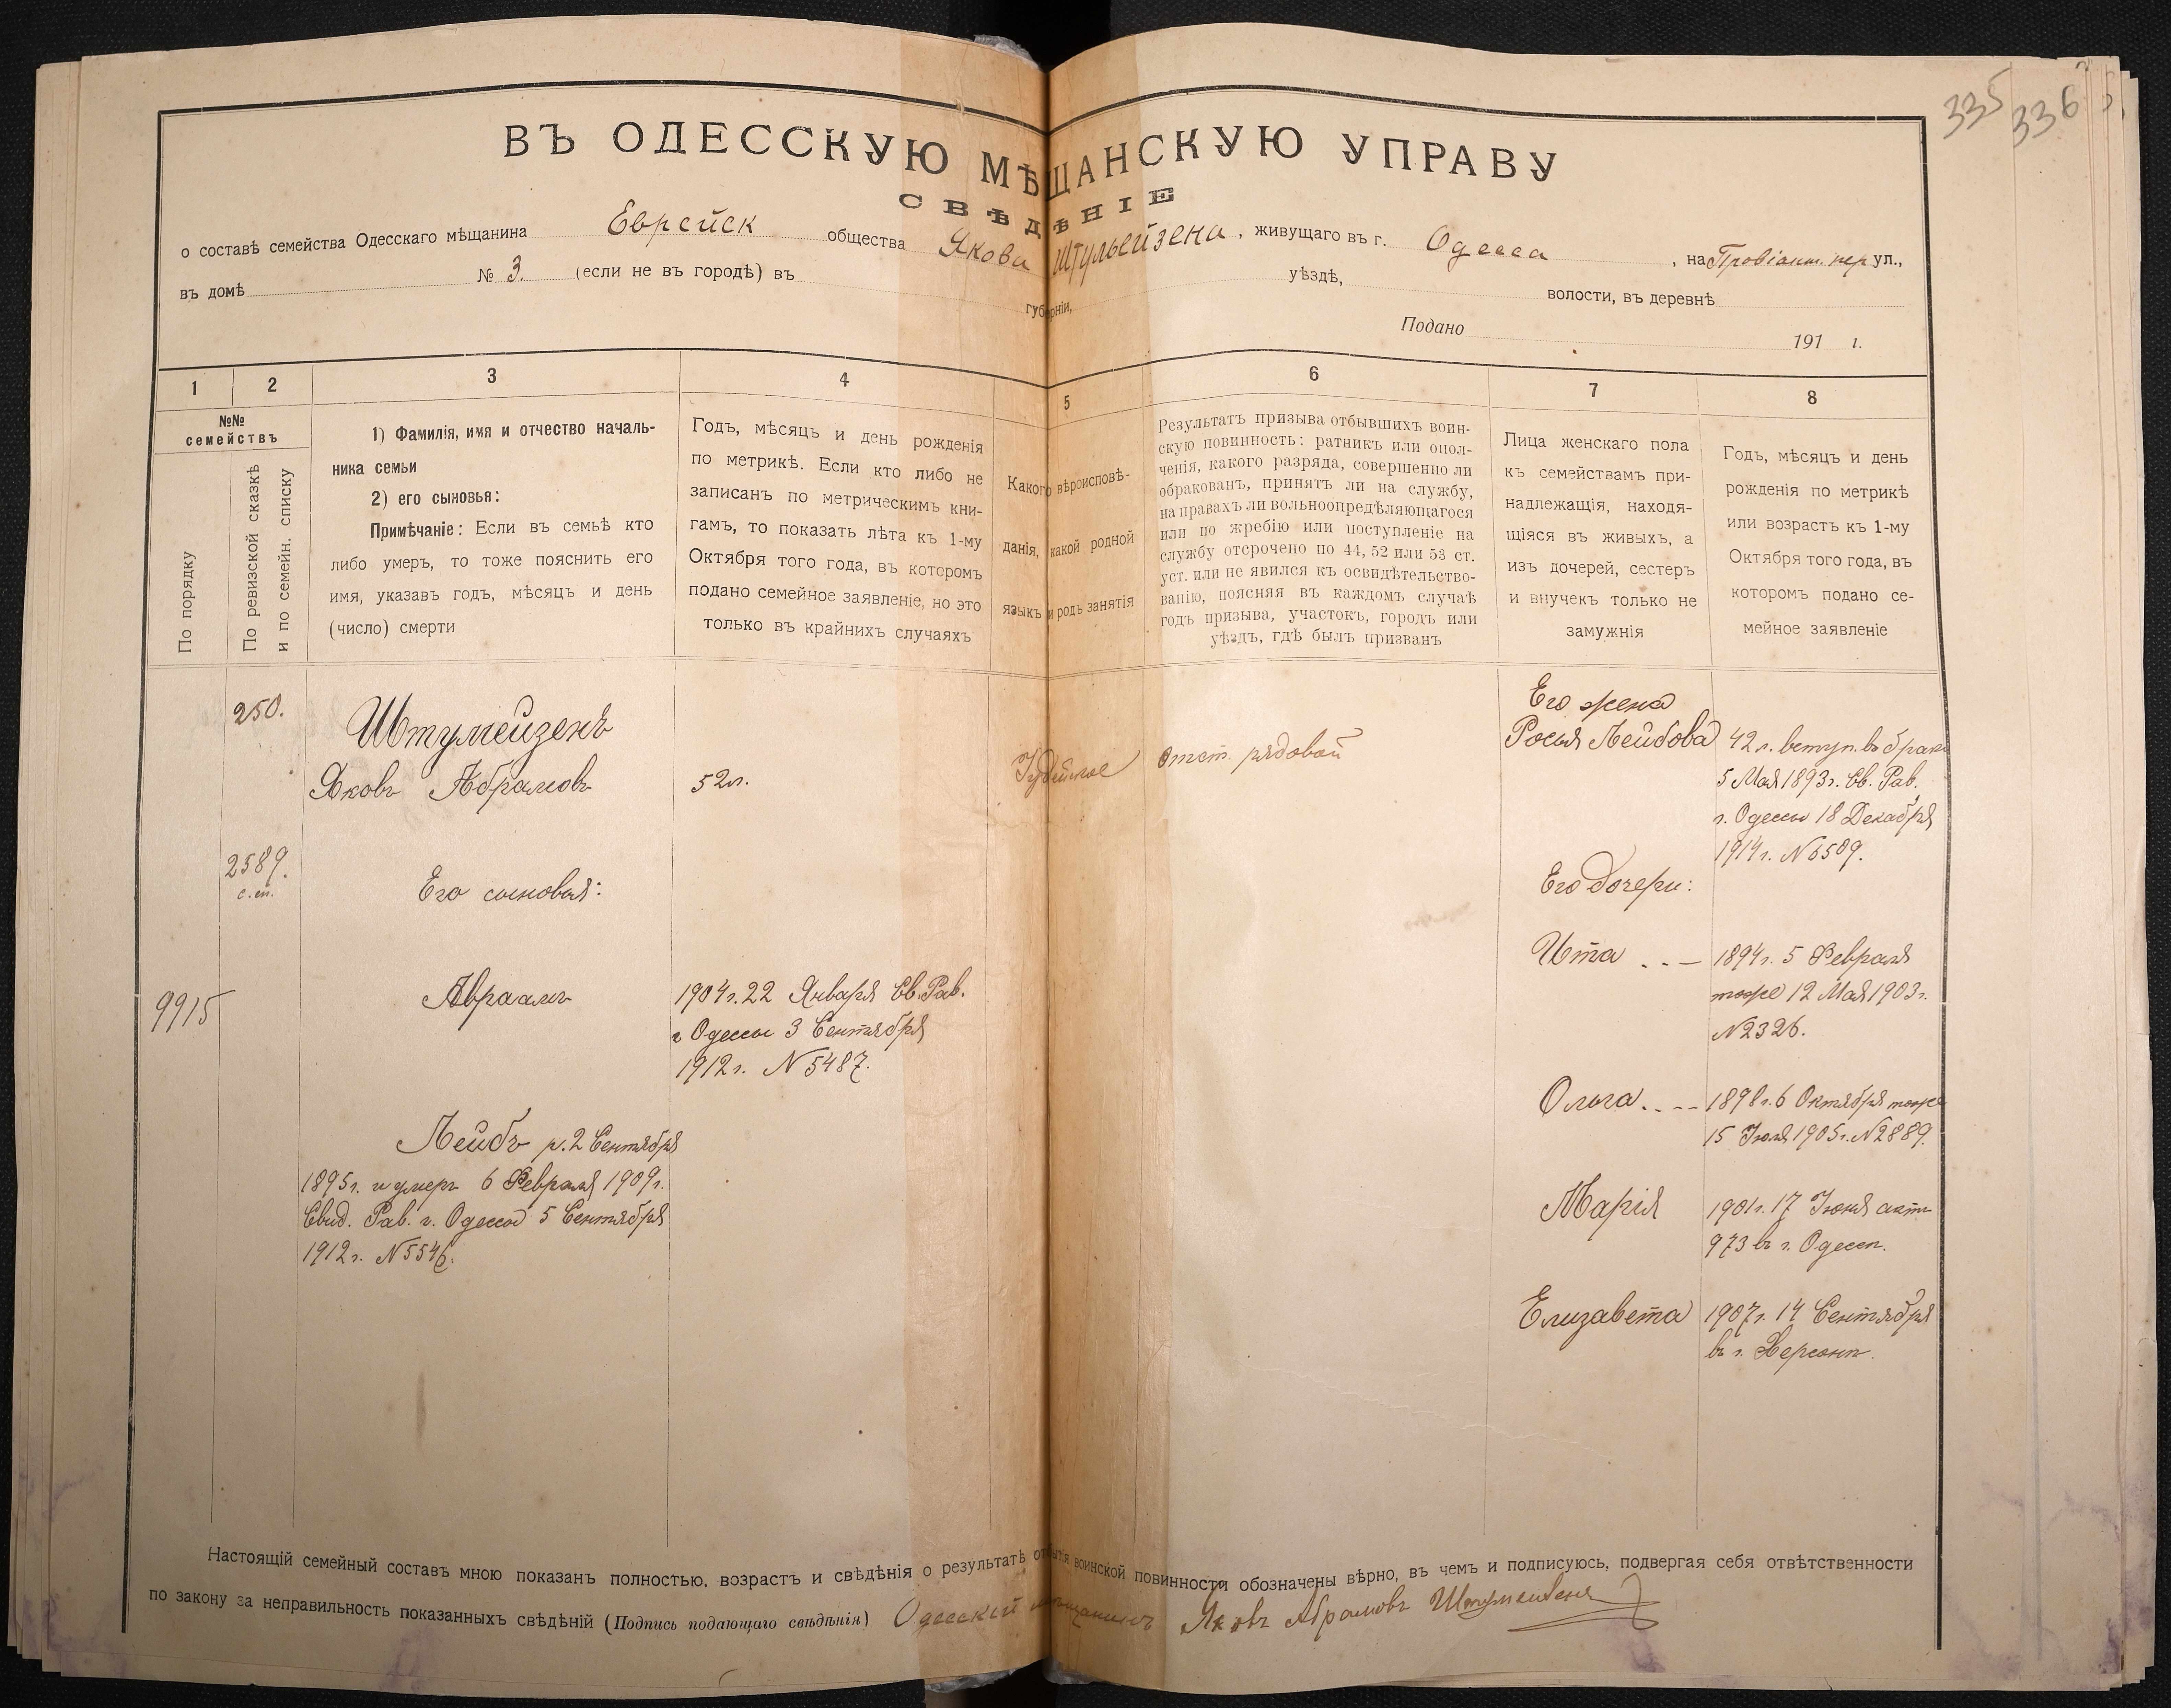 335
336
ВЪ ОДЕССКУЮ МѢЩАНСКУЮ УПРАВУ
СВѢДѢНІЕ
о составѣ семейства Одесскаго мѣщанина Еврейск общества Якова Штульейзена, живущаго въ г. Одесса, на Провіант. пер ул.,
въ домѣ № 3. (если не въ городѣ) въ губерніи, уѣздѣ, волости, въ деревнѣ
Подано 191 г.
1
2
3
4
5
6
7
8
№№
семействъ
По порядку
По ревизской сказкѣ
и по семейн. списку
1) Фамилія, имя и отчество началь-
ника семьи
2) его сыновья:
Примѣчаніе: Если въ семьѣ кто
либо умеръ, то тоже пояснить его
имя, указавъ годъ, мѣсяцъ и день
(число) смерти
Годъ, мѣсяцъ и день рожденія
по метрикѣ. Если кто либо не
записанъ по метрическимъ кни-
гамъ, то показать лѣта къ 1-му
Октября того года, въ которомъ
подано семейное заявленіе, но это
только въ крайнихъ случаяхъ
Какого вѣроисповѣ-
данія, какой родной
языкъ и родъ занятія
Результатъ призыва отбывшихъ воин-
скую повинность: ратникъ или опол-
ченія, какого разряда, совершенно ли
обракованъ, принятъ ли на службу,
на правахъ ли вольноопредѣляющагося
или по жребію или поступленіе на
службу отсрочено по 44, 52 или 53 ст.
уст. или не явился къ освидѣтельство-
ванію, поясняя въ каждомъ случаѣ
годъ призыва, участокъ, городъ или
уѣздъ, гдѣ былъ призванъ
Лица женскаго пола
къ семействамъ при-
надлежащія, находя-
щіяся въ живыхъ, а
изъ дочерей, сестеръ
и внучекъ только не
замужнія
Годъ, мѣсяцъ и день
рожденія по метрикѣ
или возрастъ къ 1-му
Октября того года, въ
которомъ подано се-
мейное заявленіе
250.
Штульейзенъ
Яковъ Абрамовъ
52 л.
Іудейское
Отст. рядовой
2589.
с. сп.
Его сыновья:
9915
Авраамъ
1904 г. 22 Января Св. Рав.
г Одессы 3 Сентября
1912 г. N 5487.
Лейбъ р. 2 Сентября
1895 г. и умеръ 6 Февраля 1909 г.
Свид. Рав. г. Одессы 5 Сентября
1912 г. N 5546.
Его жена
Росья Лейбова
42 л. вступ. въ бракъ
5 Мая 1893 г. Св. Рав.
г. Одессы 18 Декабря
1914 г. N 6509.
Его дочери:
Ита . . —
1894 г. 5 Февраля
тоже 12 Мая 1903 г.
N 2326.
Ольга . . --
1898 г. 6 Октября тоже
15 Іюля 1905 г. N 2889.
Марія
1901 г. 17 Іюня актъ
973 въ г. Одессѣ.
Елизавета
1907 г. 14 Сентября
въ г. Херсонѣ.
Настоящій семейный составъ мною показанъ полностью, возрастъ и свѣдѣнія о результатѣ отбытія воинской повинности обозначены вѣрно, въ чемъ и подписуюсь, подвергая себя отвѣтственности
по закону за неправильность показанныхъ свѣдѣній (Подпись подающаго свѣдѣнія) Одесскій мѣщанинъ Яковъ Абрамовъ Штульейзенъ